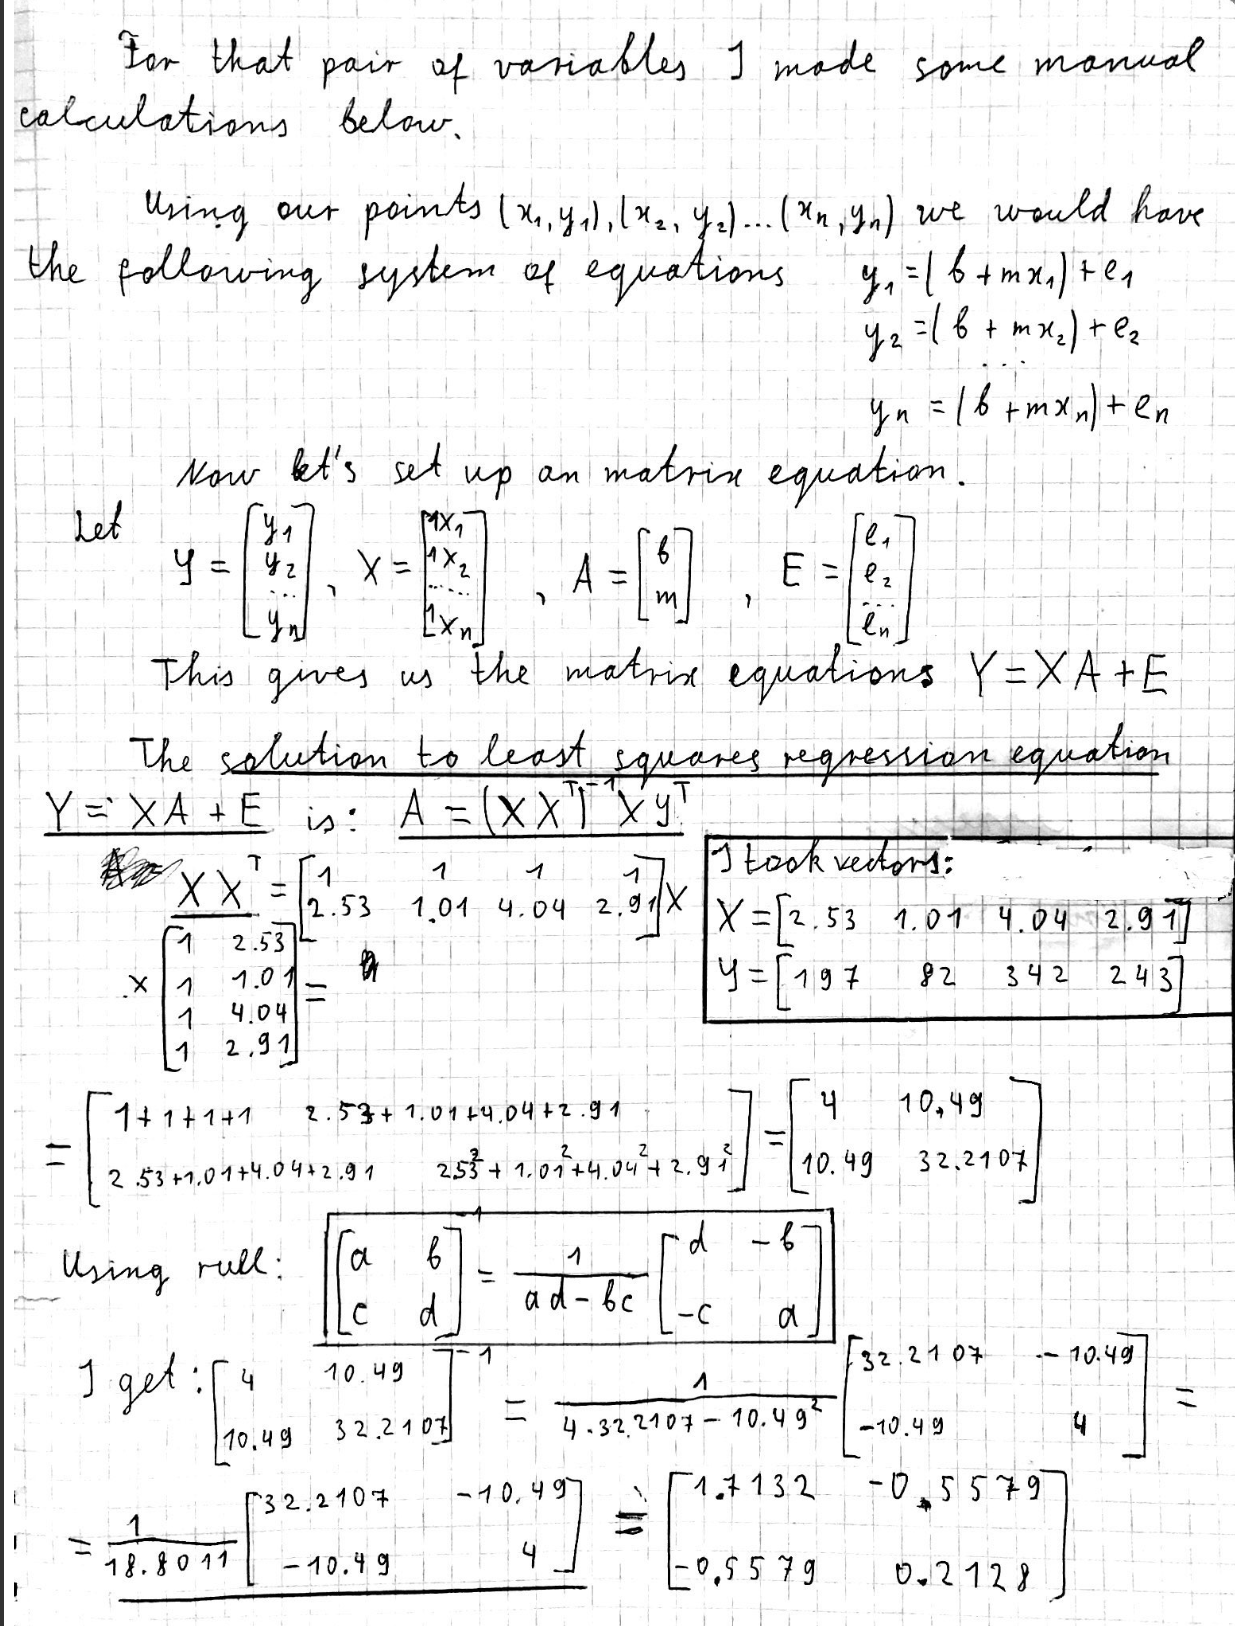 For that pair of variables I made some manual
calculations below.
Using our points (x₁,y₁),(x₂, y₂)...(xₙ,yₙ) we would have
the following system of equations y₁=(b+mx₁)+e₁
y₂=(b+mx₂)+e₂
...
yₙ=(b+mxₙ)+eₙ
Now let's set up an matrix equation.
Let
Y = [y₁ y₂ ... yₙ], X = [1x₁ 1x₂ ..... 1xₙ], A = [b m], E = [e₁ e₂ ... eₙ]
This gives us the matrix equations Y=XA+E
The solution to least squares regression equation
Y = XA + E is: A = (XXᵀ)⁻¹XYᵀ
I took vectors:
X=[2.53 1.01 4.04 2.91]
Y=[197 82 342 243]
XXᵀ = [1 1 1 1
2.53 1.01 4.04 2.91] X
× [1 2.53
1 1.01
1 4.04
1 2.91] =
= [1+1+1+1 2.53+1.01+4.04+2.91
2.53+1.01+4.04+2.91 2.53²+1.01²+4.04²+2.91²] = [4 10.49
10.49 32.2107]
Using rull: [a b
c d]⁻¹ = 1/(ad-bc) [d -b
-c a]
I get: [4 10.49
10.49 32.2107]⁻¹ = 1/(4·32.2107-10.49²) [32.2107 -10.49
-10.49 4] =
= 1/18.8011 [32.2107 -10.49
-10.49 4] = [1.7132 -0.5579
-0.5579 0.2128]